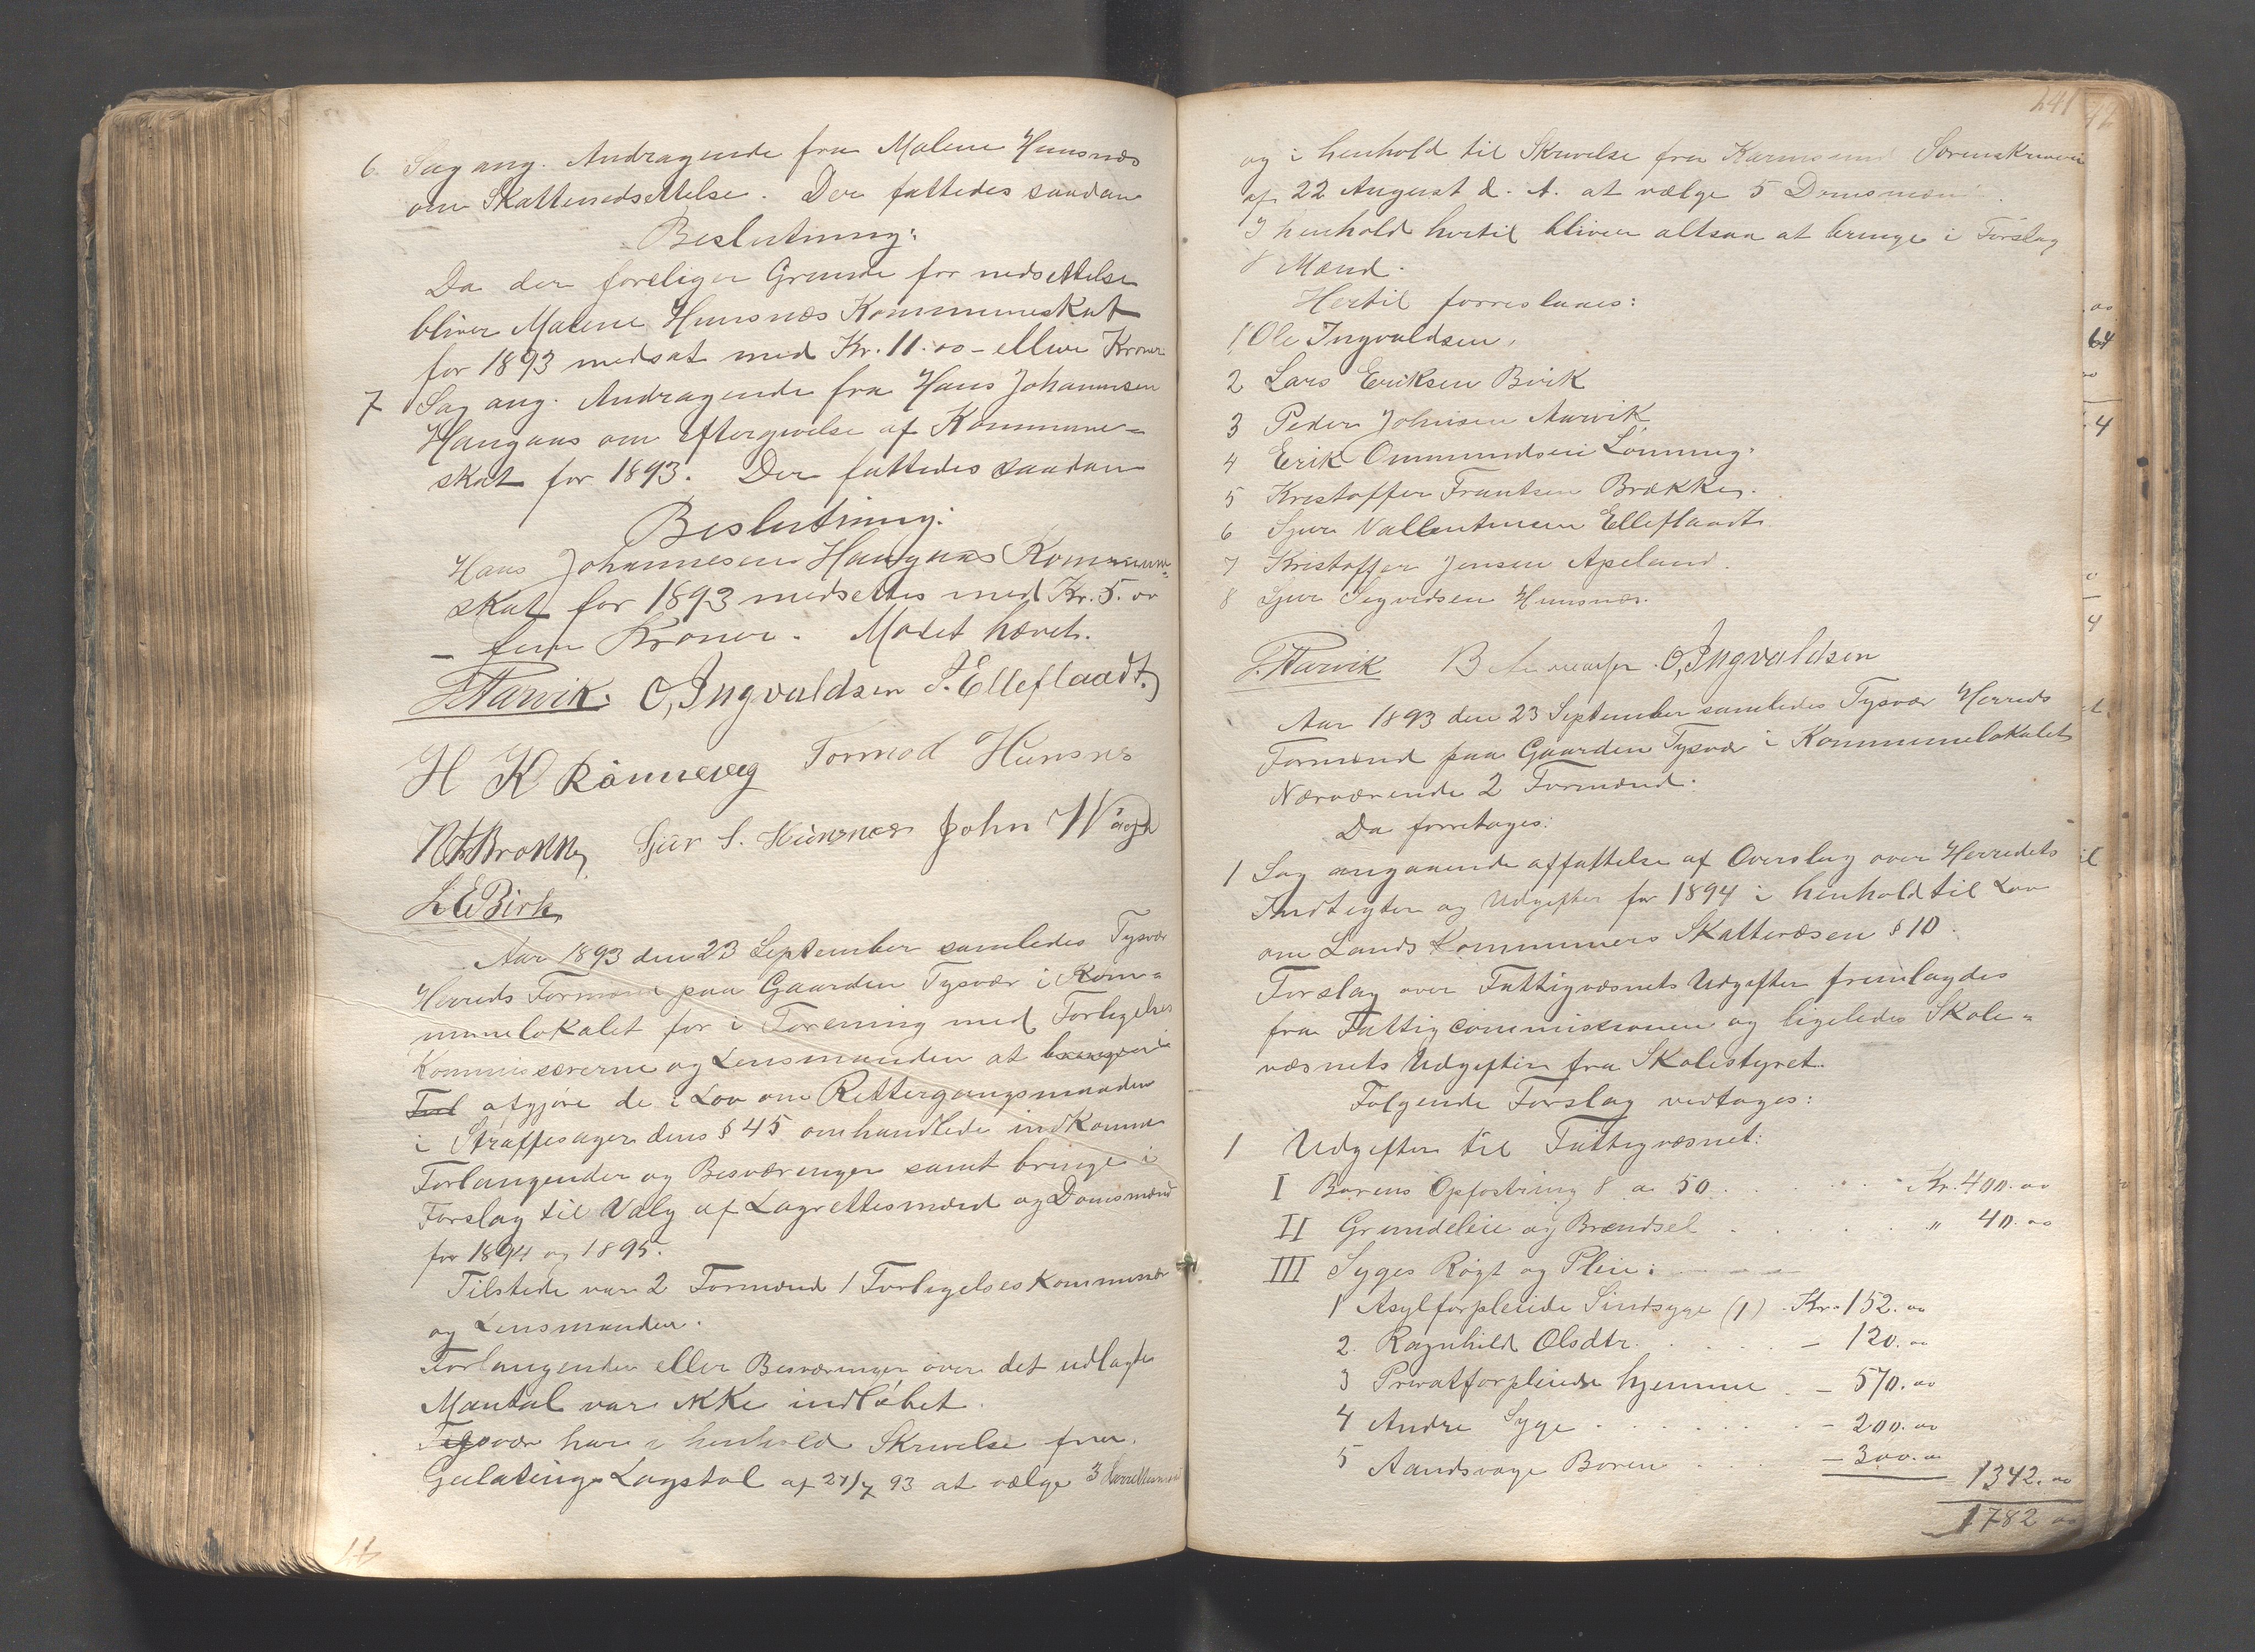 6. Sag ang. Andragende fra Malene Hunsnæs
om Skattenedsettelse. Der fattedes saadan
Beslutning:
Da der foreliger Grunde for nedsettelse
bliver Malene Hunsnæs Kommuneskat
for 1893 nedsat med Kr. 11.00 - elleve Kroner
7 Sag ang. Andragende fra Hans Johannesen
Haugaas om Eftergivelse af Kommune-
skat for 1893. Der fattedes saadan
Beslutning:
Hans Johannesens Haugaas Kommune-
skat for 1893 nedsettes med Kr. 5.00
- fem Kroner. Mødet hævet.
Aarvik. O, Ingvaldsen S. Elleflaadt.
H K Rönnevig Tormod Hunsnes
Sjur S. Hunsnæs John Vaage
L E Birk
Aar 1893 den 23 September samledes Tysvær
Herreds Formænd paa Gaarden Tysvær i Kom-
munelokalet for i Forening med Forligelses
Kommissærerne og Lensmanden at
afgjøre de i Lov om Rettergangsmaaden
i Straffesager dens § 45 omhandlede indkomne
Forlangender og Besværinger samt bringe i
Forslag til Valg af Lagrettesmænd og Domsmænd
for 1894 og 1895.
Tilstede var 2 Formænd 1 Forligelseskommissær
og Lensmanden.
Forlangender eller Besværinger over det udlagte
Mantal var ikke indløbet.
Tysvær har i henhold Skrivelse fra
Gulatings Lagstol af 27/7 93 at vælge 3 Lagrettesmænd
241
og i henhold til Skrivelse fra Karmsund Sorenskriveri
af 22 August d. A. at vælge 5 Domsmænd.
I henhold hertil bliver altsaa at bringe i Forslag
8 Mænd.
Hertil forreslaaes:
1 Ole Ingvaldsen,
2 Lars Eriksen Birk
3 Peder Johnsen Aarvik
4 Erik Ommundsen Lönning.
5 Kristoffer Frantsen Brække.
6 Sjur Vallentinsen Elleflaadt
7 Kristoffer Jensen Apeland.
8 Sjur Sigvedsen Hunsnæs.
Aarvik O, Ingvaldsen
Aar 1893 den 23 September samledes Tysvær Herreds
Formænd paa Gaarden Tysvær i Kommunelokalet
Nærværende 2 Formænd.
Da forretoges:
1 Sag angaaende affattelse af Overslag over Herredets
Indtegter og Udgifter for 1894 i henhold til Lov
om Lands Kommuners Skattevæsen § 10.
Forslag over Fattigvæsnets Udgifter fremlagdes
fra Fattigcommissionen og ligeledes Skole-
væsnets Udgifter fra Skolestyret.
Følgende Forslag vedtoges:
1 Udgifter til Fattigvæsnet:
I Børens Opfostring 8 a 50 . . . Kr. 400.00
II Grundeleie og Brændsel . . . " 40.00
III Syges Røgt og Pleie:
1 Asylforpleiede Sindsyge (1) . Kr. 152.00
2. Ragnhild Olsdtr. . . . - 120.00
3 Privatforpleiede hjemme . - 570.00
4 Andre Syge . . . - 200.00
5 Aandsvage Børen . . . - 300.00
1342.00
1782 00